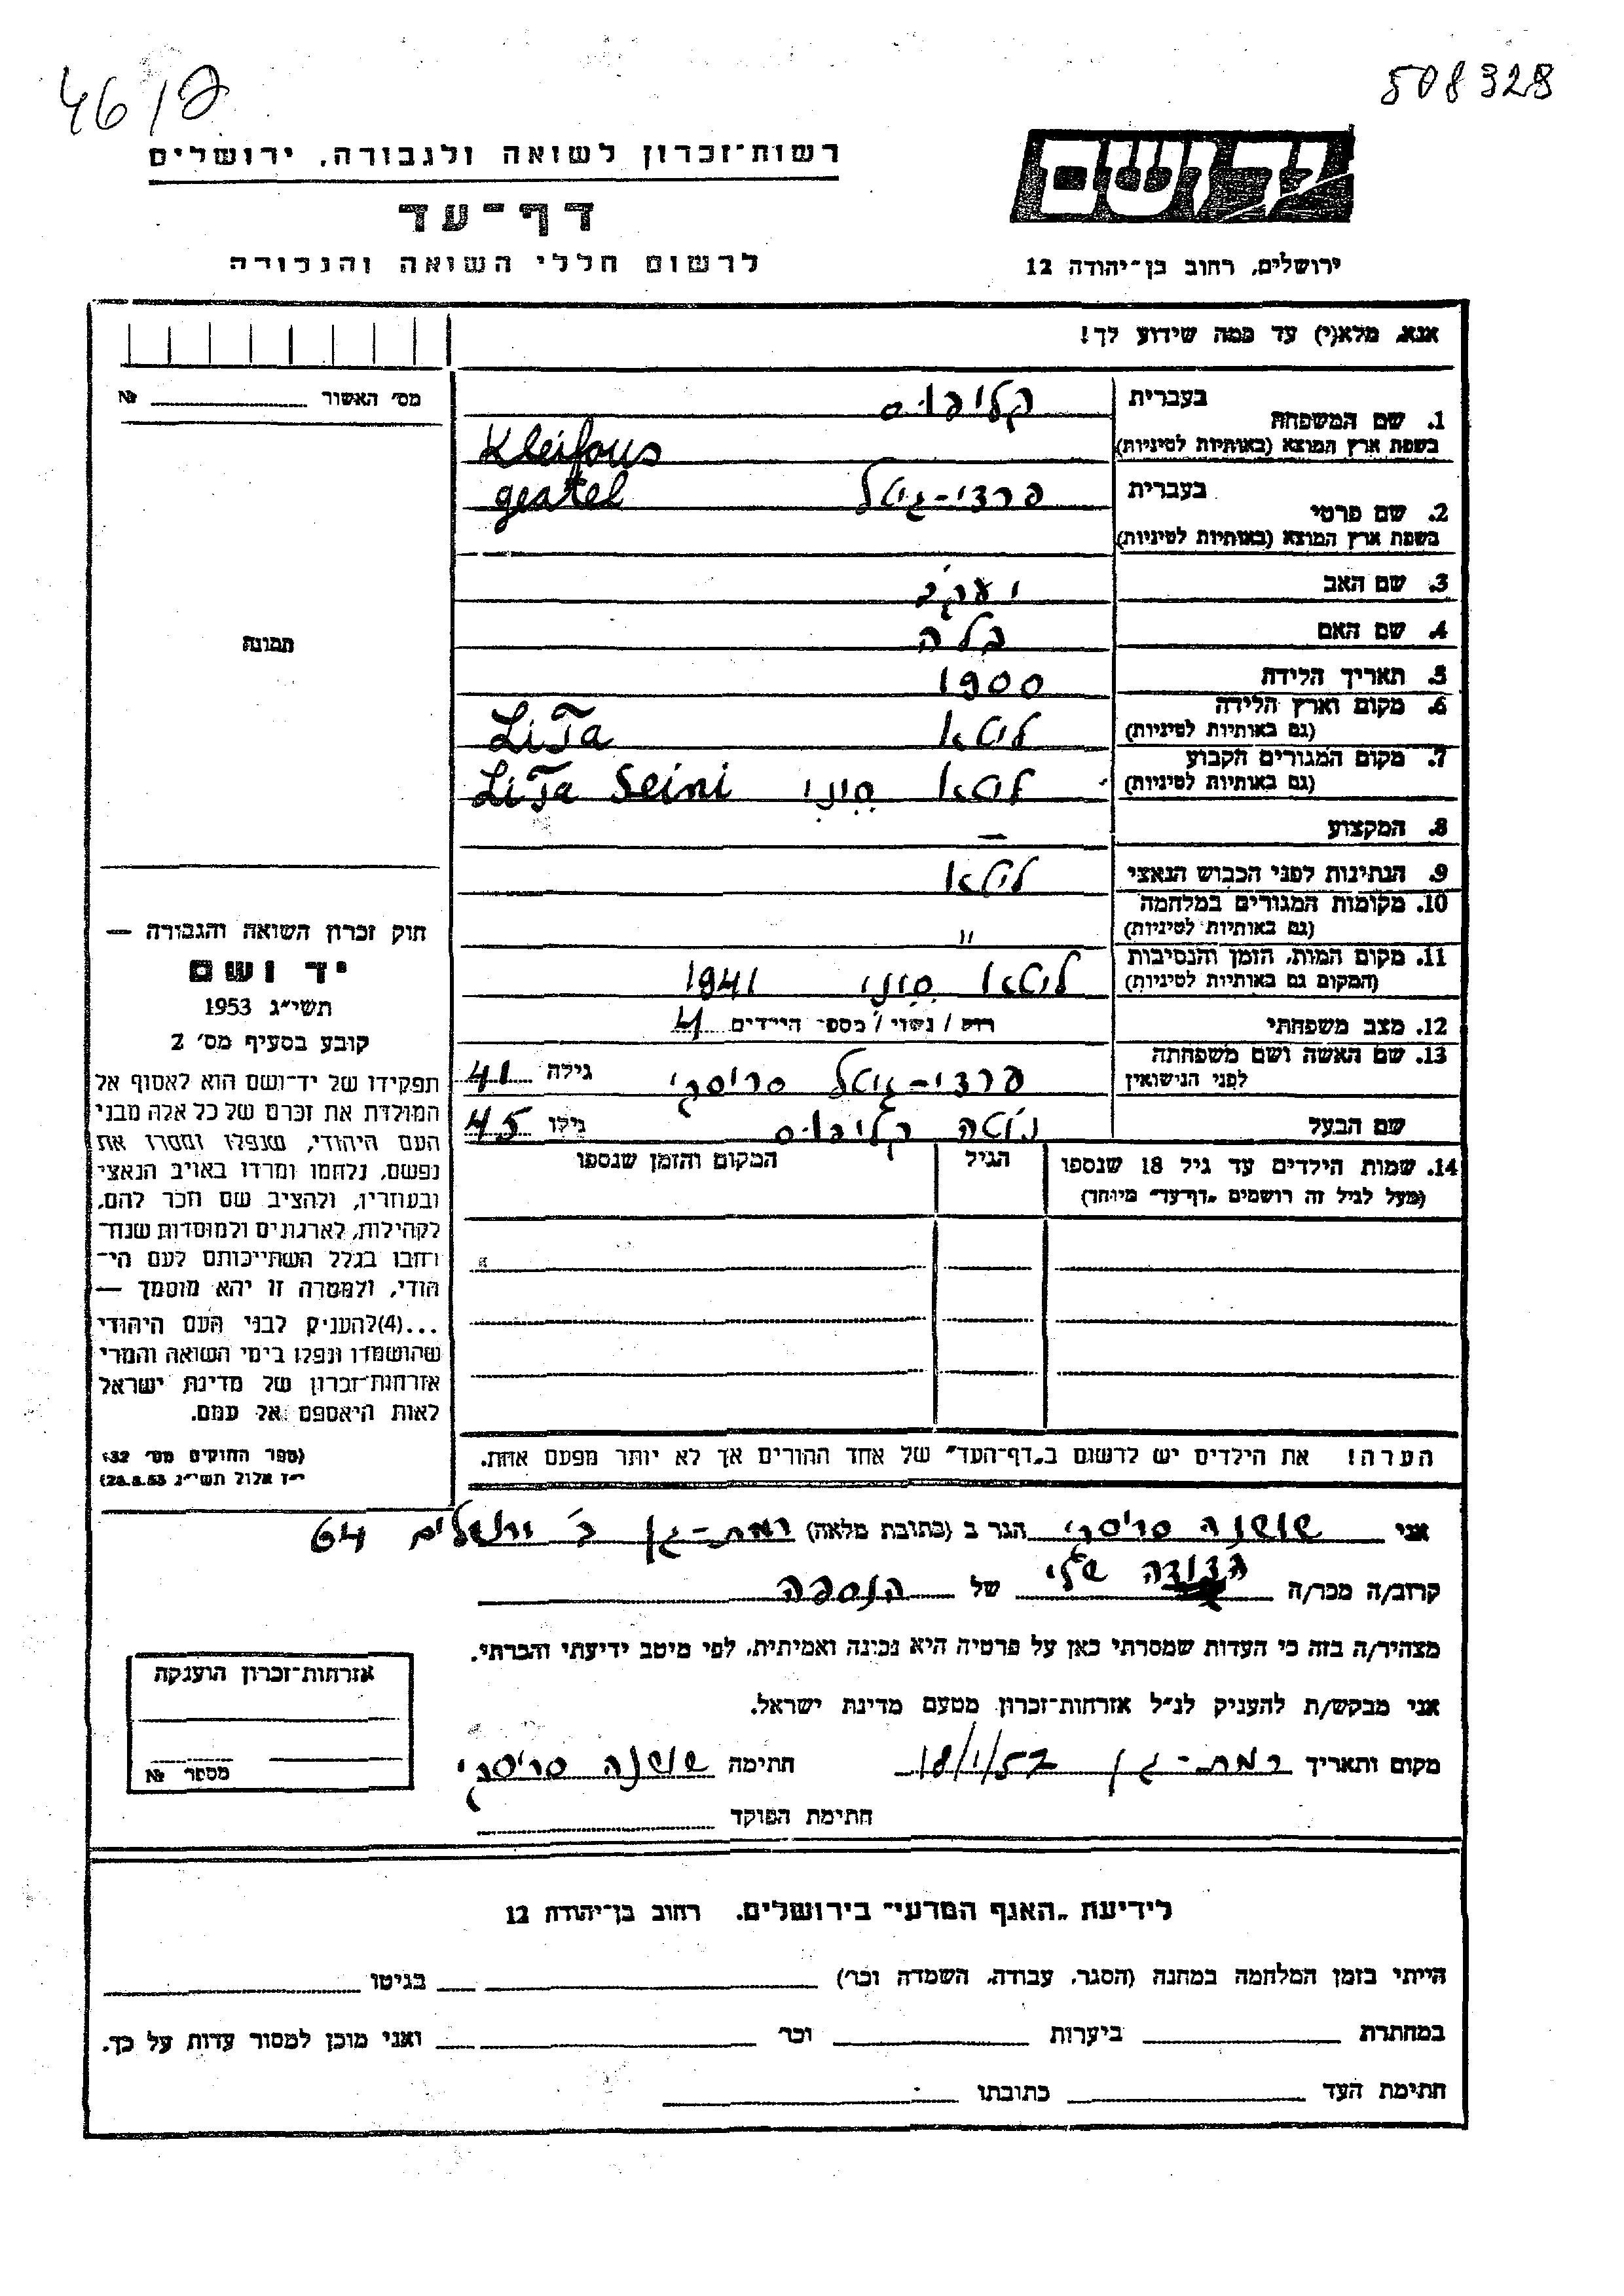 46/פ
508328
רשות־זכרון לשואה ולגבורה, ירושלים
דף־עד
לרשום חללי השואה והגבורה
יד ושם
ירושלים, רחוב בן־יהודה 12
אנא, מלא(י) עד כמה שידוע לך!
מס׳ האשור №
1. שם המשפחה בעברית קליפוס
בשפת ארץ המוצא (באותיות לטיניות) Kleifous
2. שם פרטי בעברית פרדי-גיטל geatel
בשפת ארץ המוצא (באותיות לטיניות)
3. שם האב יעקב
4. שם האם בלה
5. תאריך הלידה 1900
6. מקום וארץ הלידה (גם באותיות לטיניות) ליטא LiTa
7. מקום המגורים הקבוע (גם באותיות לטיניות) ליטא סיני LiTa Seini
8. המקצוע —
9. הנתינות לפני הכבוש הנאצי ליטא
10. מקומות המגורים במלחמה (גם באותיות לטיניות) "
11. מקום המות, הזמן והנסיבות (המקום גם באותיות לטיניות) ליטא סיני 1941
12. מצב משפחתי רוק / נשוי / מספר הילדים 4
13. שם האשה ושם משפחתה לפני הנישואין פרדי-גיטל סריסקי גילה 41
שם הבעל נוטה קליפוס גילו 45
14. שמות הילדים עד גיל 18 שנספו הגיל המקום והזמן שנספו
(מעל לגיל זה רושמים „דף־עד״ מיוחד)
הערה! את הילדים יש לרשום ב„דף־העד״ של אחד ההורים אך לא יותר מפעם אחת.
תמונה
חוק זכרון השואה והגבורה —
יד ושם
תשי״ג 1953
קובע בסעיף מס׳ 2
תפקידו של יד־ושם הוא לאסוף אל
המולדת את זכרם של כל אלה מבני
העם היהודי, שנפלו ומסרו את
נפשם, נלחמו ומרדו באויב הנאצי
ובעוזריו, ולהציב שם וזכר להם,
לקהילות, לארגונים ולמוסדות שנח־
רבו בגלל השתייכותם לעם הי־
הודי, ולמטרה זו יהא מוסמך —
...(4)להעניק לבני העם היהודי
שהושמדו ונפלו בימי השואה והמרי
אזרחות־זכרון של מדינת ישראל
לאות היאספם אל עמם.
(ספר החוקים מס׳ 132
י״ז אלול תשי״ג 28.8.53)
אני שושנה סריסקי הגר ב (כתובת מלאה) רמת-גן ב׳ ירושלים 64
קרוב/ה מכר/ה הדודה שלי של הנספה
מצהיר/ה בזה כי העדות שמסרתי כאן על פרטיה היא נכונה ואמיתית, לפי מיטב ידיעתי והכרתי.
אני מבקש/ת להעניק לנ״ל אזרחות־זכרון מטעם מדינת ישראל.
מקום ותאריך רמת-גן 18/1/57 חתימה שושנה סריסקי
חתימת הפוקד
אזרחות־זכרון הוענקה
מספר №
לידיעת „האגף המדעי״ בירושלים, רחוב בן־יהודה 12
הייתי בזמן המלחמה במחנה (הסגר, עבודה, השמדה וכו׳) בגיטו
במחתרת ביערות וכו׳ ואני מוכן למסור עדות על כך.
חתימת העד כתובתו